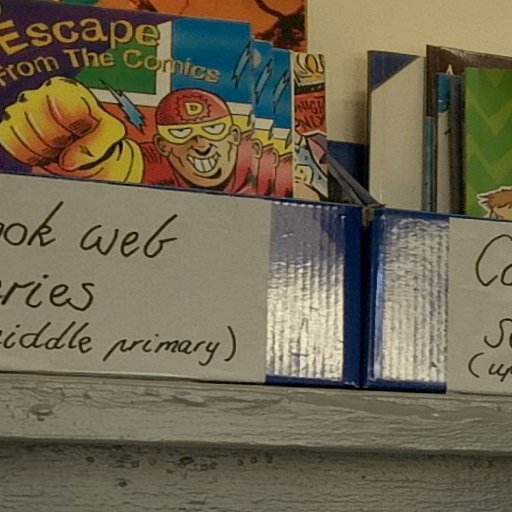 Escape
From The Comics
D
ook web
ries
iddle primary)
Co
S
(up